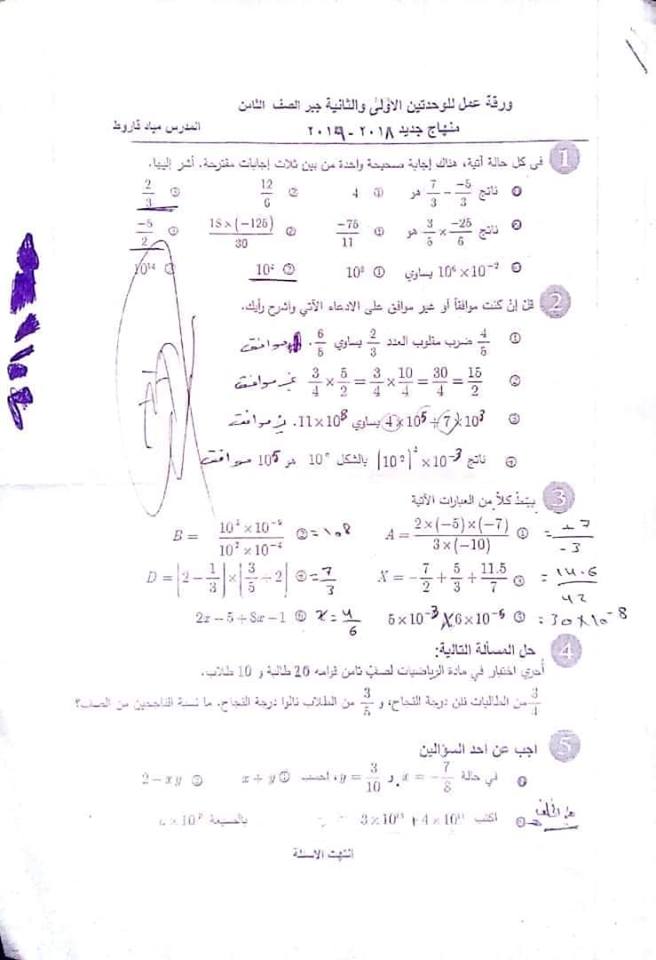 ورقة عمل للوحدتين الأولى والثانية جبر الصف الثامن
منهاج جديد ٢٠١٨ - ٢٠١٩ المدرس مياد قاروط
1 في كل حالة آتية، هناك إجابة صحيحة واحدة من بين ثلاث إجابات مقترحة. أشر إليها.
① ناتج 7/3 - -5/3 هو ① 4 ② 12/6 ③ 2/3
② ناتج 3/5 × -25/6 هو ① -75/11 ② 18×(-125)/30 ③ -5/2
③ 10⁶ × 10⁻² يساوي ① 10⁸ ② 10⁴ ③ 10¹⁴
2 قل إن كنت موافقاً أو غير موافق على الادعاء الآتي واشرح رأيك.
① 4/5 ضرب مقلوب العدد 2/3 يساوي 6/5. موافق
② 3/4 × 5/2 = 3/4 × 10/4 = 30/4 = 15/2 غير موافق
③ 4×10⁵ + 7×10³ يساوي 11×10⁸. موافق
④ ناتج × 10⁻³ بالشكل هو 10⁵ موافق
3 بسّط كلاً من العبارات الآتية
① A = 2×(-5)×(-7)/3×(-10) = -3 ② B = = 10⁸
③ X = -7/2 + 5/3 + 11.5/7 = 14.6/42 ④ D = |2 - 1/3| × |3/5 ÷ 2| = 7/3
⑤ 5×10⁻³ × 6×10⁻⁵ = 30×10⁻⁸ ⑥ 2x - 5 + 8x - 1 x = 4/6
4 حل المسألة التالية:
أُجري اختبار في مادة الرياضيات لصف ثامن قوامه 20 طالبة و 10 طلاب.
3/4 من الطالبات نلن درجة النجاح، و 3/5 من الطلاب نالوا درجة النجاح. ما نسبة الناجحين من الصف؟
5 اجب عن أحد السؤالين
① في حالة x = -7/8 و y = 3/10، احسب ① x + y ② 2 - xy
② اكتب 3×10¹³ + 4×10¹¹ بالصيغة
على الخلف
انتهت الاسئلة